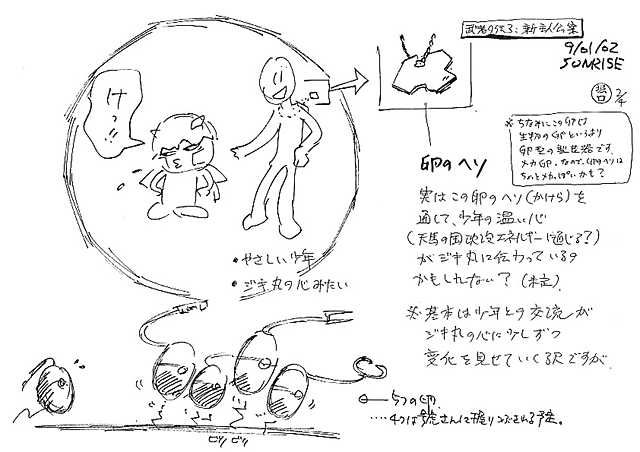 武者〇伝3:新主人公案
9/01/02
SUNRISE
2/4
※ちなみにこのGPは
生物のGPというより
卵型の製造器です。
メカGP.なので、卵のヘソは
ちょとメカっぽいかも?
けっ
卵のヘソ
実はこの卵のヘソ(かけら)を
通して、少年の温い心
(天馬の国の次元エネルギーに通じる?)
がジキ丸に伝わっているの
かもしれない?(未定)
・やさしい少年
・ジキ丸の心みたい
※基本は少年との交流が
ジキ丸の心に少しずつ
変化を見せていく訳ですが
5つの卵
‥‥4つは
される予定。